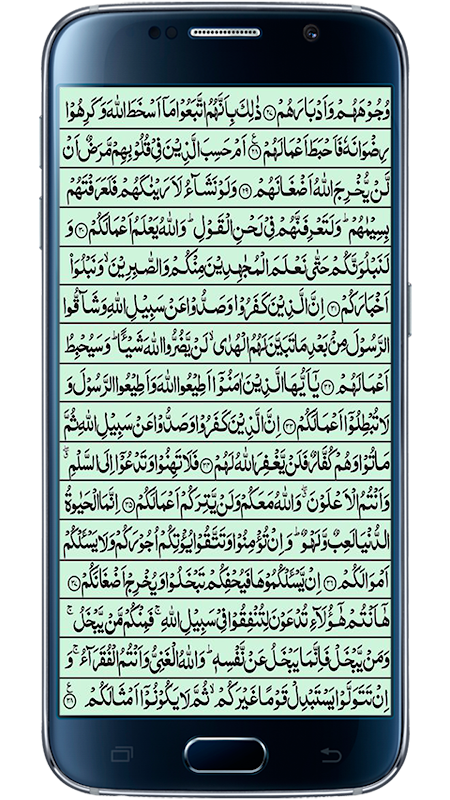 وُجُوْهَهُمْ وَاَدْبَارَهُمْ ﴿۲۷﴾ ذٰلِكَ بِاَنَّهُمُ اتَّبَعُوْا مَاۤ اَسْخَطَ اللّٰهَ وَكَرِهُوْا
رِضْوَانَهٗ فَاَحْبَطَ اَعْمَالَهُمْ ﴿۲۸﴾ اَمْ حَسِبَ الَّذِيْنَ فِيْ قُلُوْبِهِمْ مَّرَضٌ اَنْ
لَّنْ يُّخْرِجَ اللّٰهُ اَضْغَانَهُمْ ﴿۲۹﴾ وَلَوْ نَشَآءُ لَاَرَيْنٰكَهُمْ فَلَعَرَفْتَهُمْ
بِسِيْمٰهُمْ ؕ وَلَتَعْرِفَنَّهُمْ فِيْ لَحْنِ الْقَوْلِ ؕ وَاللّٰهُ يَعْلَمُ اَعْمَالَكُمْ ﴿۳۰﴾ وَ
لَنَبْلُوَنَّكُمْ حَتّٰى نَعْلَمَ الْمُجٰهِدِيْنَ مِنْكُمْ وَالصّٰبِرِيْنَ ۙ وَنَبْلُوَا۟
اَخْبَارَكُمْ ﴿۳۱﴾ اِنَّ الَّذِيْنَ كَفَرُوْا وَصَدُّوْا عَنْ سَبِيْلِ اللّٰهِ وَشَآقُّوا
الرَّسُوْلَ مِنْۢ بَعْدِ مَا تَبَيَّنَ لَهُمُ الْهُدٰى ۙ لَنْ يَّضُرُّوا اللّٰهَ شَيْـًٔا ؕ وَسَيُحْبِطُ
اَعْمَالَهُمْ ﴿۳۲﴾ يٰۤاَيُّهَا الَّذِيْنَ اٰمَنُوْۤا اَطِيْعُوا اللّٰهَ وَاَطِيْعُوا الرَّسُوْلَ وَ
لَا تُبْطِلُوْۤا اَعْمَالَكُمْ ﴿۳۳﴾ اِنَّ الَّذِيْنَ كَفَرُوْا وَصَدُّوْا عَنْ سَبِيْلِ اللّٰهِ ثُمَّ
مَاتُوْا وَهُمْ كُفَّارٌ فَلَنْ يَّغْفِرَ اللّٰهُ لَهُمْ ﴿۳۴﴾ فَلَا تَهِنُوْا وَتَدْعُوْۤا اِلَى السَّلْمِ ۖ
وَاَنْتُمُ الْاَعْلَوْنَ ۖ وَاللّٰهُ مَعَكُمْ وَلَنْ يَّتِرَكُمْ اَعْمَالَكُمْ ﴿۳۵﴾ اِنَّمَا الْحَيٰوةُ
الدُّنْيَا لَعِبٌ وَّلَهْوٌ ؕ وَاِنْ تُؤْمِنُوْا وَتَتَّقُوْا يُؤْتِكُمْ اُجُوْرَكُمْ وَلَا يَسْـَٔلْكُمْ
اَمْوَالَكُمْ ﴿۳۶﴾ اِنْ يَّسْـَٔلْكُمُوْهَا فَيُحْفِكُمْ تَبْخَلُوْا وَيُخْرِجْ اَضْغَانَكُمْ ﴿۳۷﴾
هٰۤاَنْتُمْ هٰۤؤُلَآءِ تُدْعَوْنَ لِتُنْفِقُوْا فِيْ سَبِيْلِ اللّٰهِ ۚ فَمِنْكُمْ مَّنْ يَّبْخَلُ ۚ
وَمَنْ يَّبْخَلْ فَاِنَّمَا يَبْخَلُ عَنْ نَّفْسِهٖ ؕ وَاللّٰهُ الْغَنِيُّ وَاَنْتُمُ الْفُقَرَآءُ ۚ وَ
اِنْ تَتَوَلَّوْا يَسْتَبْدِلْ قَوْمًا غَيْرَكُمْ ۙ ثُمَّ لَا يَكُوْنُوْۤا اَمْثَالَكُمْ ﴿۳۸﴾